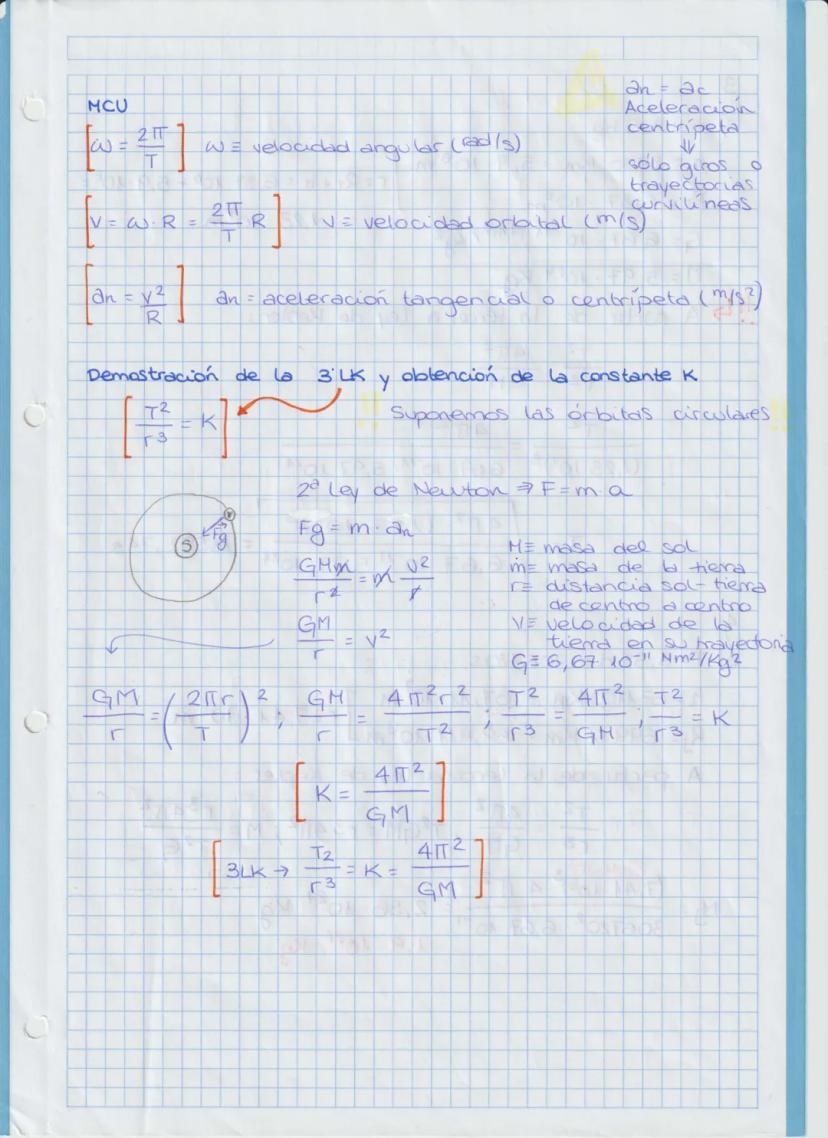 MCU
an = ac
Aceleración
centrípeta
⇓
sólo giros o
trayectorias
curvilíneas
[ω = 2π/T] ω ≡ velocidad angular (rad/s)
[V = ω·R = 2π/T R] V ≡ velocidad orbital (m/s)
[an = v²/R] an = aceleración tangencial o centrípeta (m/s²)
Demostración de la 3ª LK y obtención de la constante K
[T²/r³ = K] Suponemos las órbitas circulares !!
2ª Ley de Newton ⇒ F = m·a
Fg = m·an
S
Fg
GMm/r² = m v²/r
GM/r = v²
M ≡ masa del sol
m ≡ masa de la tierra
r ≡ distancia sol-tierra
de centro a centro
V ≡ velocidad de la
tierra en su trayectoria
G ≡ 6,67·10⁻¹¹ Nm²/Kg²
GM/r = (2πr/T)²; GM/r = 4π²r²/T²; T²/r³ = 4π²/GM; T²/r³ = K
[K = 4π²/GM]
[3LK → T2/r³ = K = 4π²/GM]